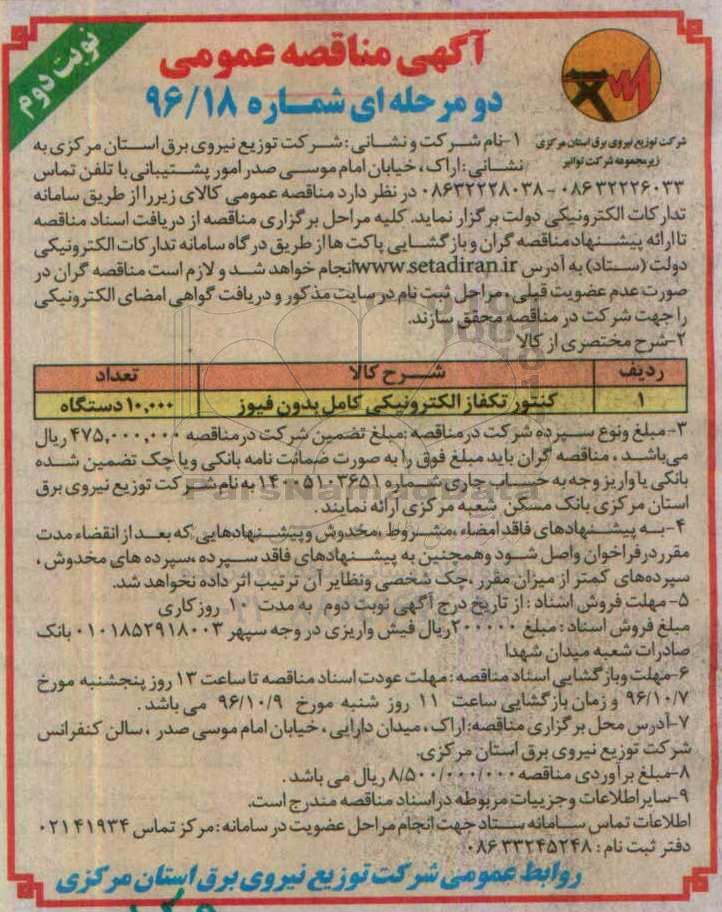 نوبت دوم
آگهی مناقصه عمومی
دو مرحله ای شماره ۹۶/۱۸
شرکت توزیع نیروی برق استان مرکزی
زیرمجموعه شرکت توانیر
۱-نام شرکت و نشانی: شرکت توزیع نیروی برق استان مرکزی به
نشانی: اراک، خیابان امام موسی صدر امور پشتیبانی با تلفن تماس
۰۸۶۳۲۲۲۶۰۳۳ - ۰۸۶۳۲۲۲۸۰۳۸ در نظر دارد مناقصه عمومی کالای زیر را از طریق سامانه
تدارکات الکترونیکی دولت برگزار نماید. کلیه مراحل برگزاری مناقصه از دریافت اسناد مناقصه
تا ارائه پیشنهاد مناقصه گران و بازگشایی پاکت ها از طریق درگاه سامانه تدارکات الکترونیکی
دولت (ستاد) به آدرس www.setadiran.ir انجام خواهد شد و لازم است مناقصه گران در
صورت عدم عضویت قبلی، مراحل ثبت نام در سایت مذکور و دریافت گواهی امضای الکترونیکی
را جهت شرکت در مناقصه محقق سازند.
۲-شرح مختصری از کالا
ردیف شرح کالا تعداد
۱ کنتور تکفاز الکترونیکی کامل بدون فیوز ۱۰,۰۰۰ دستگاه
۳- مبلغ ونوع سپرده شرکت در مناقصه :مبلغ تضمین شرکت در مناقصه ۴۷۵,۰۰۰,۰۰۰ ریال
می باشد ، مناقصه گران باید مبلغ فوق را به صورت ضمانت نامه بانکی ویا چک تضمین شده
بانکی یا واریز وجه به حساب جاری شماره ۱۴۰۰۵۱۰۳۶۵۱ به نام شرکت توزیع نیروی برق
استان مرکزی بانک مسکن شعبه مرکزی ارائه نمایند .
ParsNamadData
۴-به پیشنهادهای فاقد امضاء ،مشروط ،مخدوش وپیشنهادهایی که بعد از انقضاء مدت
مقرر در فراخوان واصل شود وهمچنین به پیشنهادهای فاقد سپرده ،سپرده های مخدوش ،
سپرده‌های کمتر از میزان مقرر ،چک شخصی ونظایر آن ترتیب اثر داده نخواهد شد.
۵- مهلت فروش اسناد : از تاریخ درج آگهی نوبت دوم به مدت ۱۰ روز کاری
مبلغ فروش اسناد : مبلغ ۲۰۰۰۰۰ ریال فیش واریزی در وجه سپهر ۰۱۰۱۸۵۲۹۱۸۰۰۳ بانک
صادرات شعبه میدان شهدا
۶-مهلت وبازگشایی اسناد مناقصه : مهلت عودت اسناد مناقصه تا ساعت ۱۳ روز پنجشنبه مورخ
۹۶/۱۰/۷ و زمان بازگشایی ساعت ۱۱ روز شنبه مورخ ۹۶/۱۰/۹ می باشد .
۷-آدرس محل برگزاری مناقصه: اراک ، میدان دارایی ، خیابان امام موسی صدر ، سالن کنفرانس
شرکت توزیع نیروی برق استان مرکزی.
۸-مبلغ برآوردی مناقصه ۸/۵۰۰/۰۰۰/۰۰۰ ریال می باشد .
۹-سایر اطلاعات وجزییات مربوطه در اسناد مناقصه مندرج است.
اطلاعات تماس سامانه ستاد جهت انجام مراحل عضویت در سامانه : مرکز تماس ۰۲۱۴۱۹۳۴
دفتر ثبت نام : ۰۸۶۳۳۲۴۵۲۴۸
روابط عمومی شرکت توزیع نیروی برق استان مرکزی